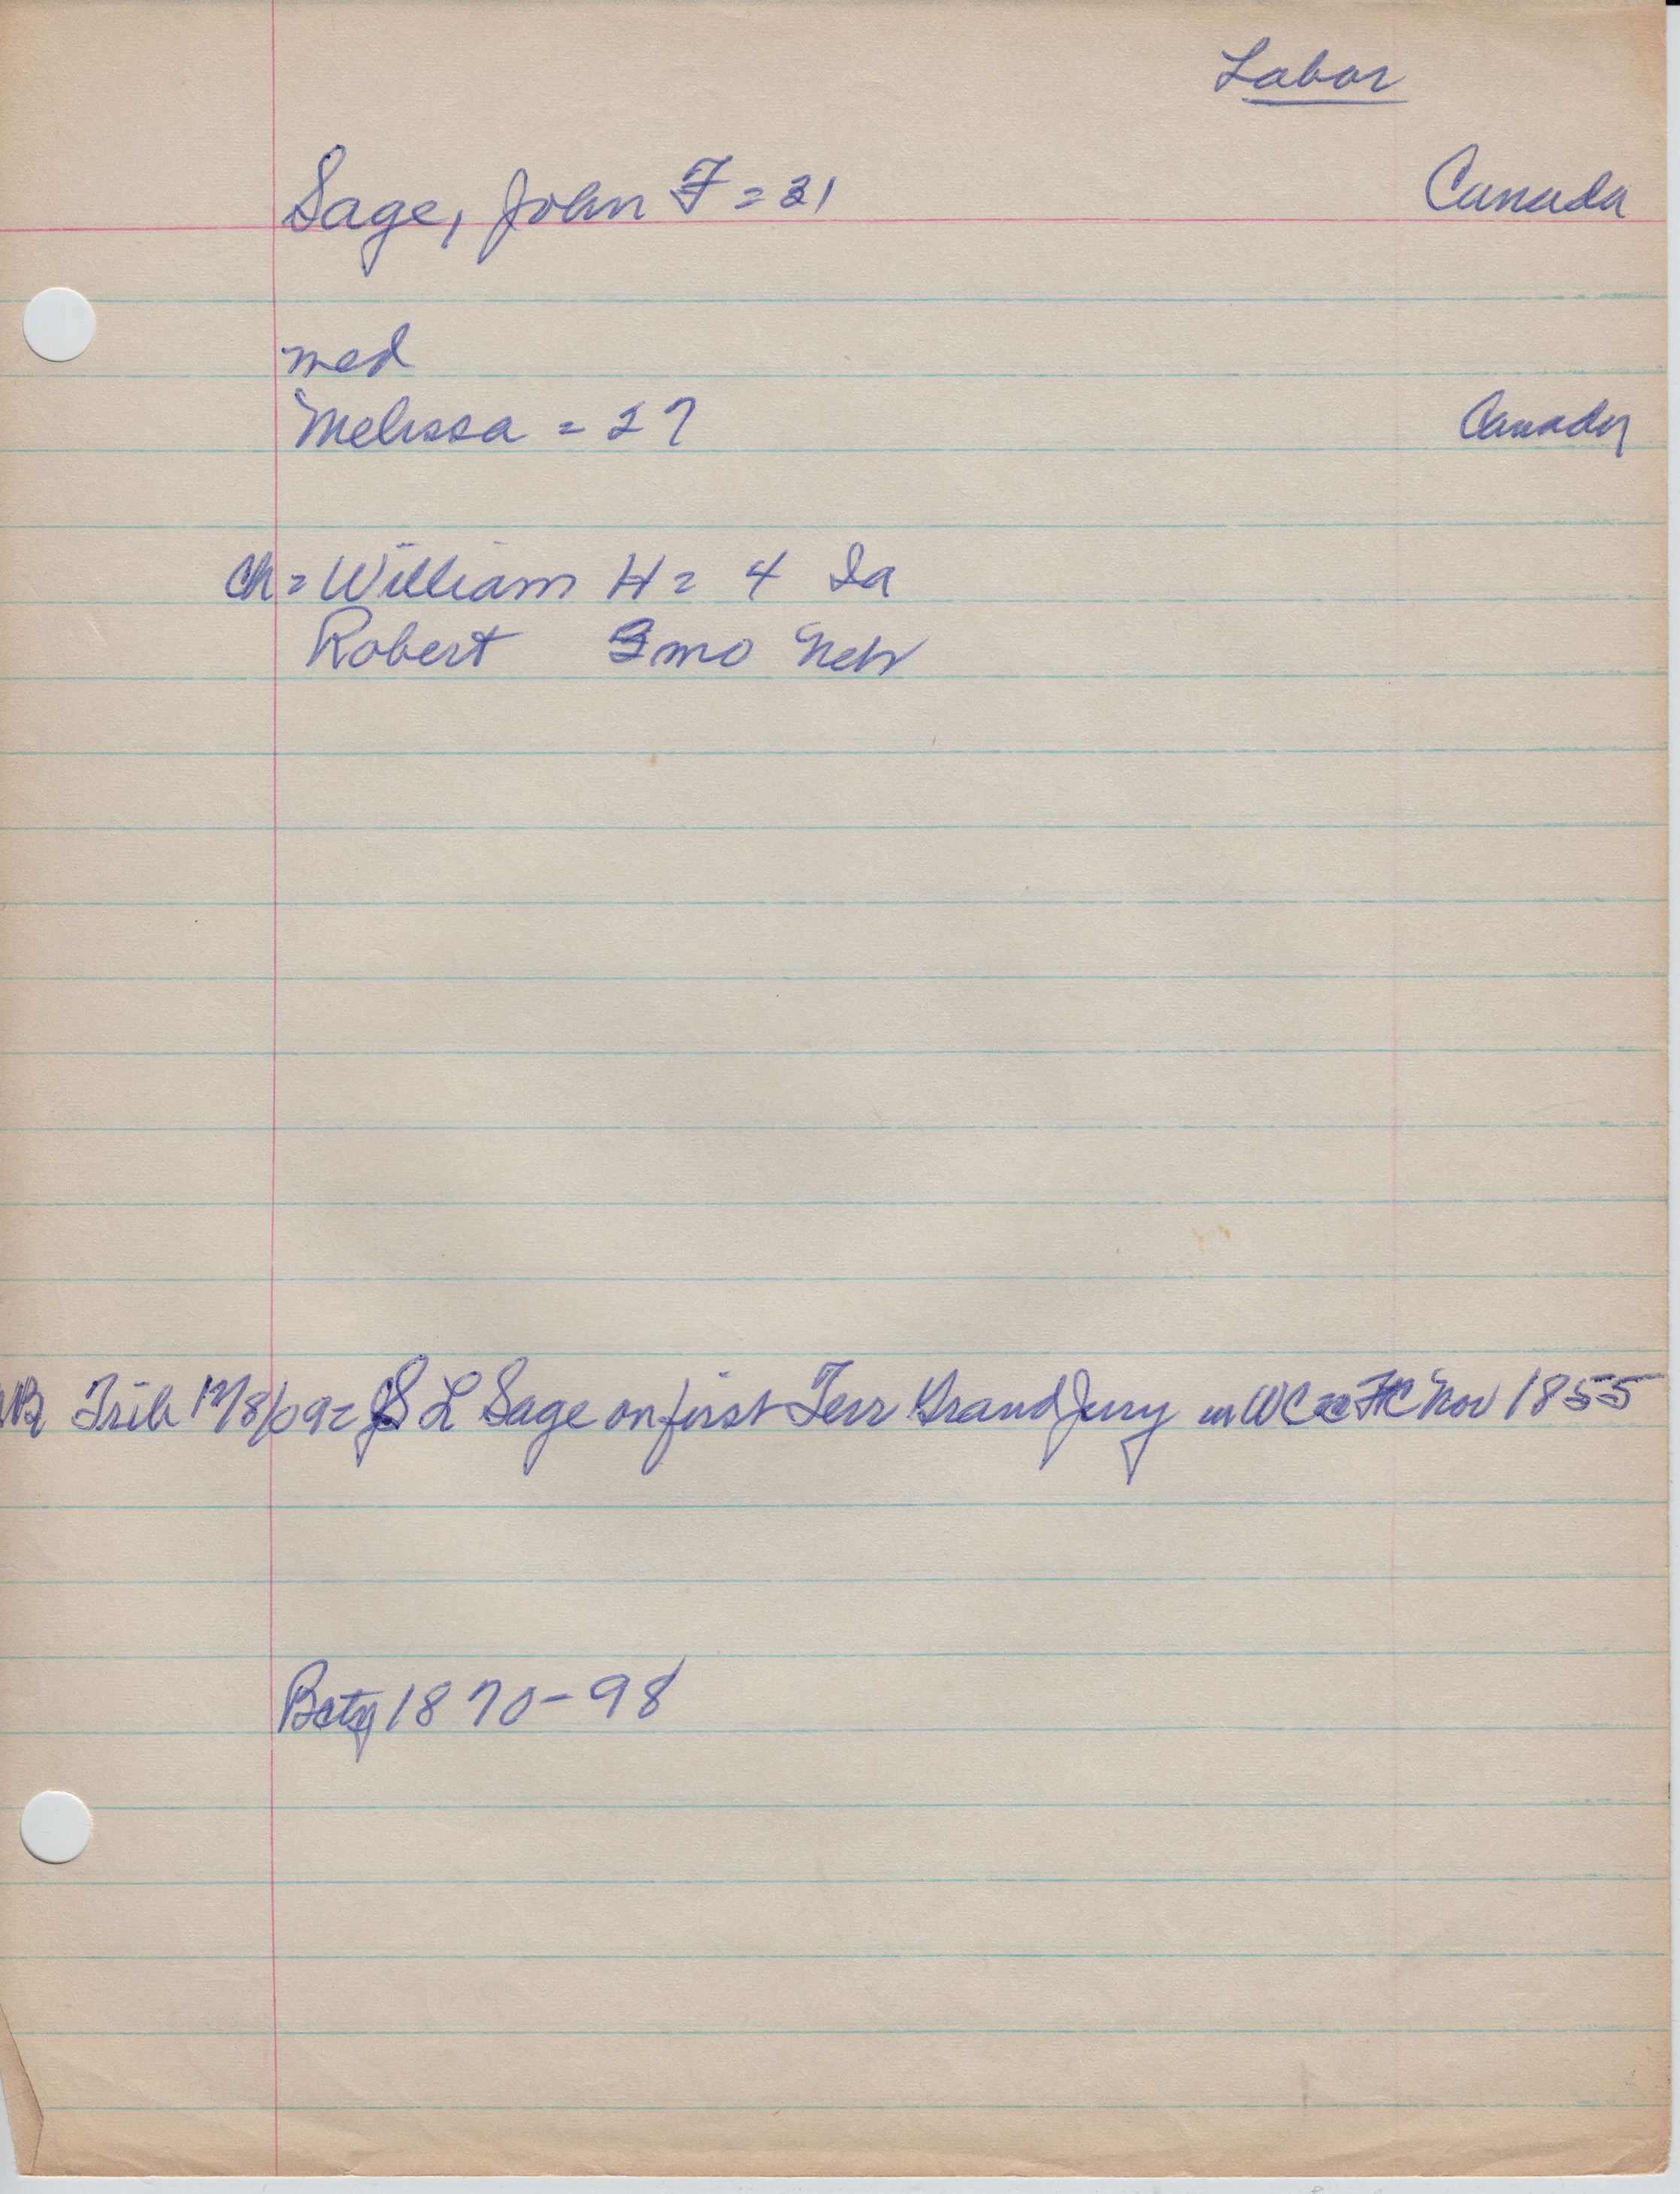 Labor
Sage, John F = 31 Canada
med
Melissa = 27 Canada
ch = William H = 4 Ia
Robert 3 mo Neb
Trib 12/8/09 = S L Sage on first Terr Grand Jury in WC Nov 1855
1870-98